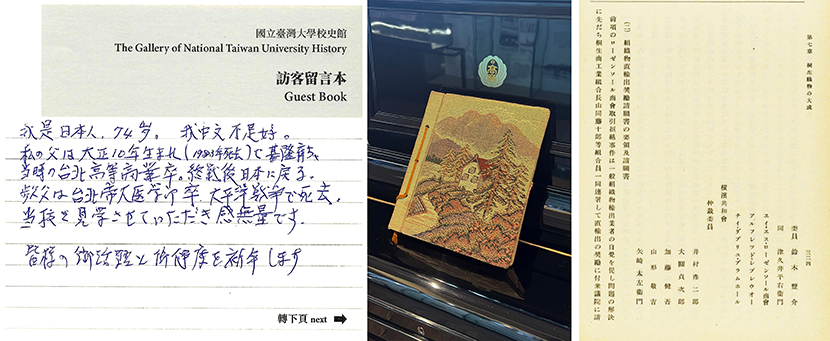 國立臺灣大學校史館
The Gallery of National Taiwan University History
訪客留言本
Guest Book
我是日本人，74歲。 我中文不是好。
私の父は大正10年生まれ(1983年死去)で基隆育ち、
当時の台北高等商業卒。終戦後日本に戻る。
叔父は台北帝大医学部卒、太平洋戦争で死去。
当校を見学させていただき感無量です。
皆様の御活躍と御健康を祈念します
轉下頁 next
高
第七章 桐生織物の大成
三二四
委員 鈴木豐介
同 津久井平右衞門
エイ・エス・ローゼンソール商會
アルフレッド・レブレウオー
テイ・ダブリユ・アラムホール
橫濱共和會
仲裁委員
井村彥二郎
大關貞次郎
加藤健吾
山形敬吉
矢崎太左衞門
(二) 絹織物直輸出獎勵請願書の要領及請願書
前項のローゼンソール商會取引拒絕事件は一般絹織物輸出業者の自覺を促し問題の解決
に先だち桐生商工業組合長山同藤十郎等組合員一同連署して直輸出の獎勵に付衆議院に請